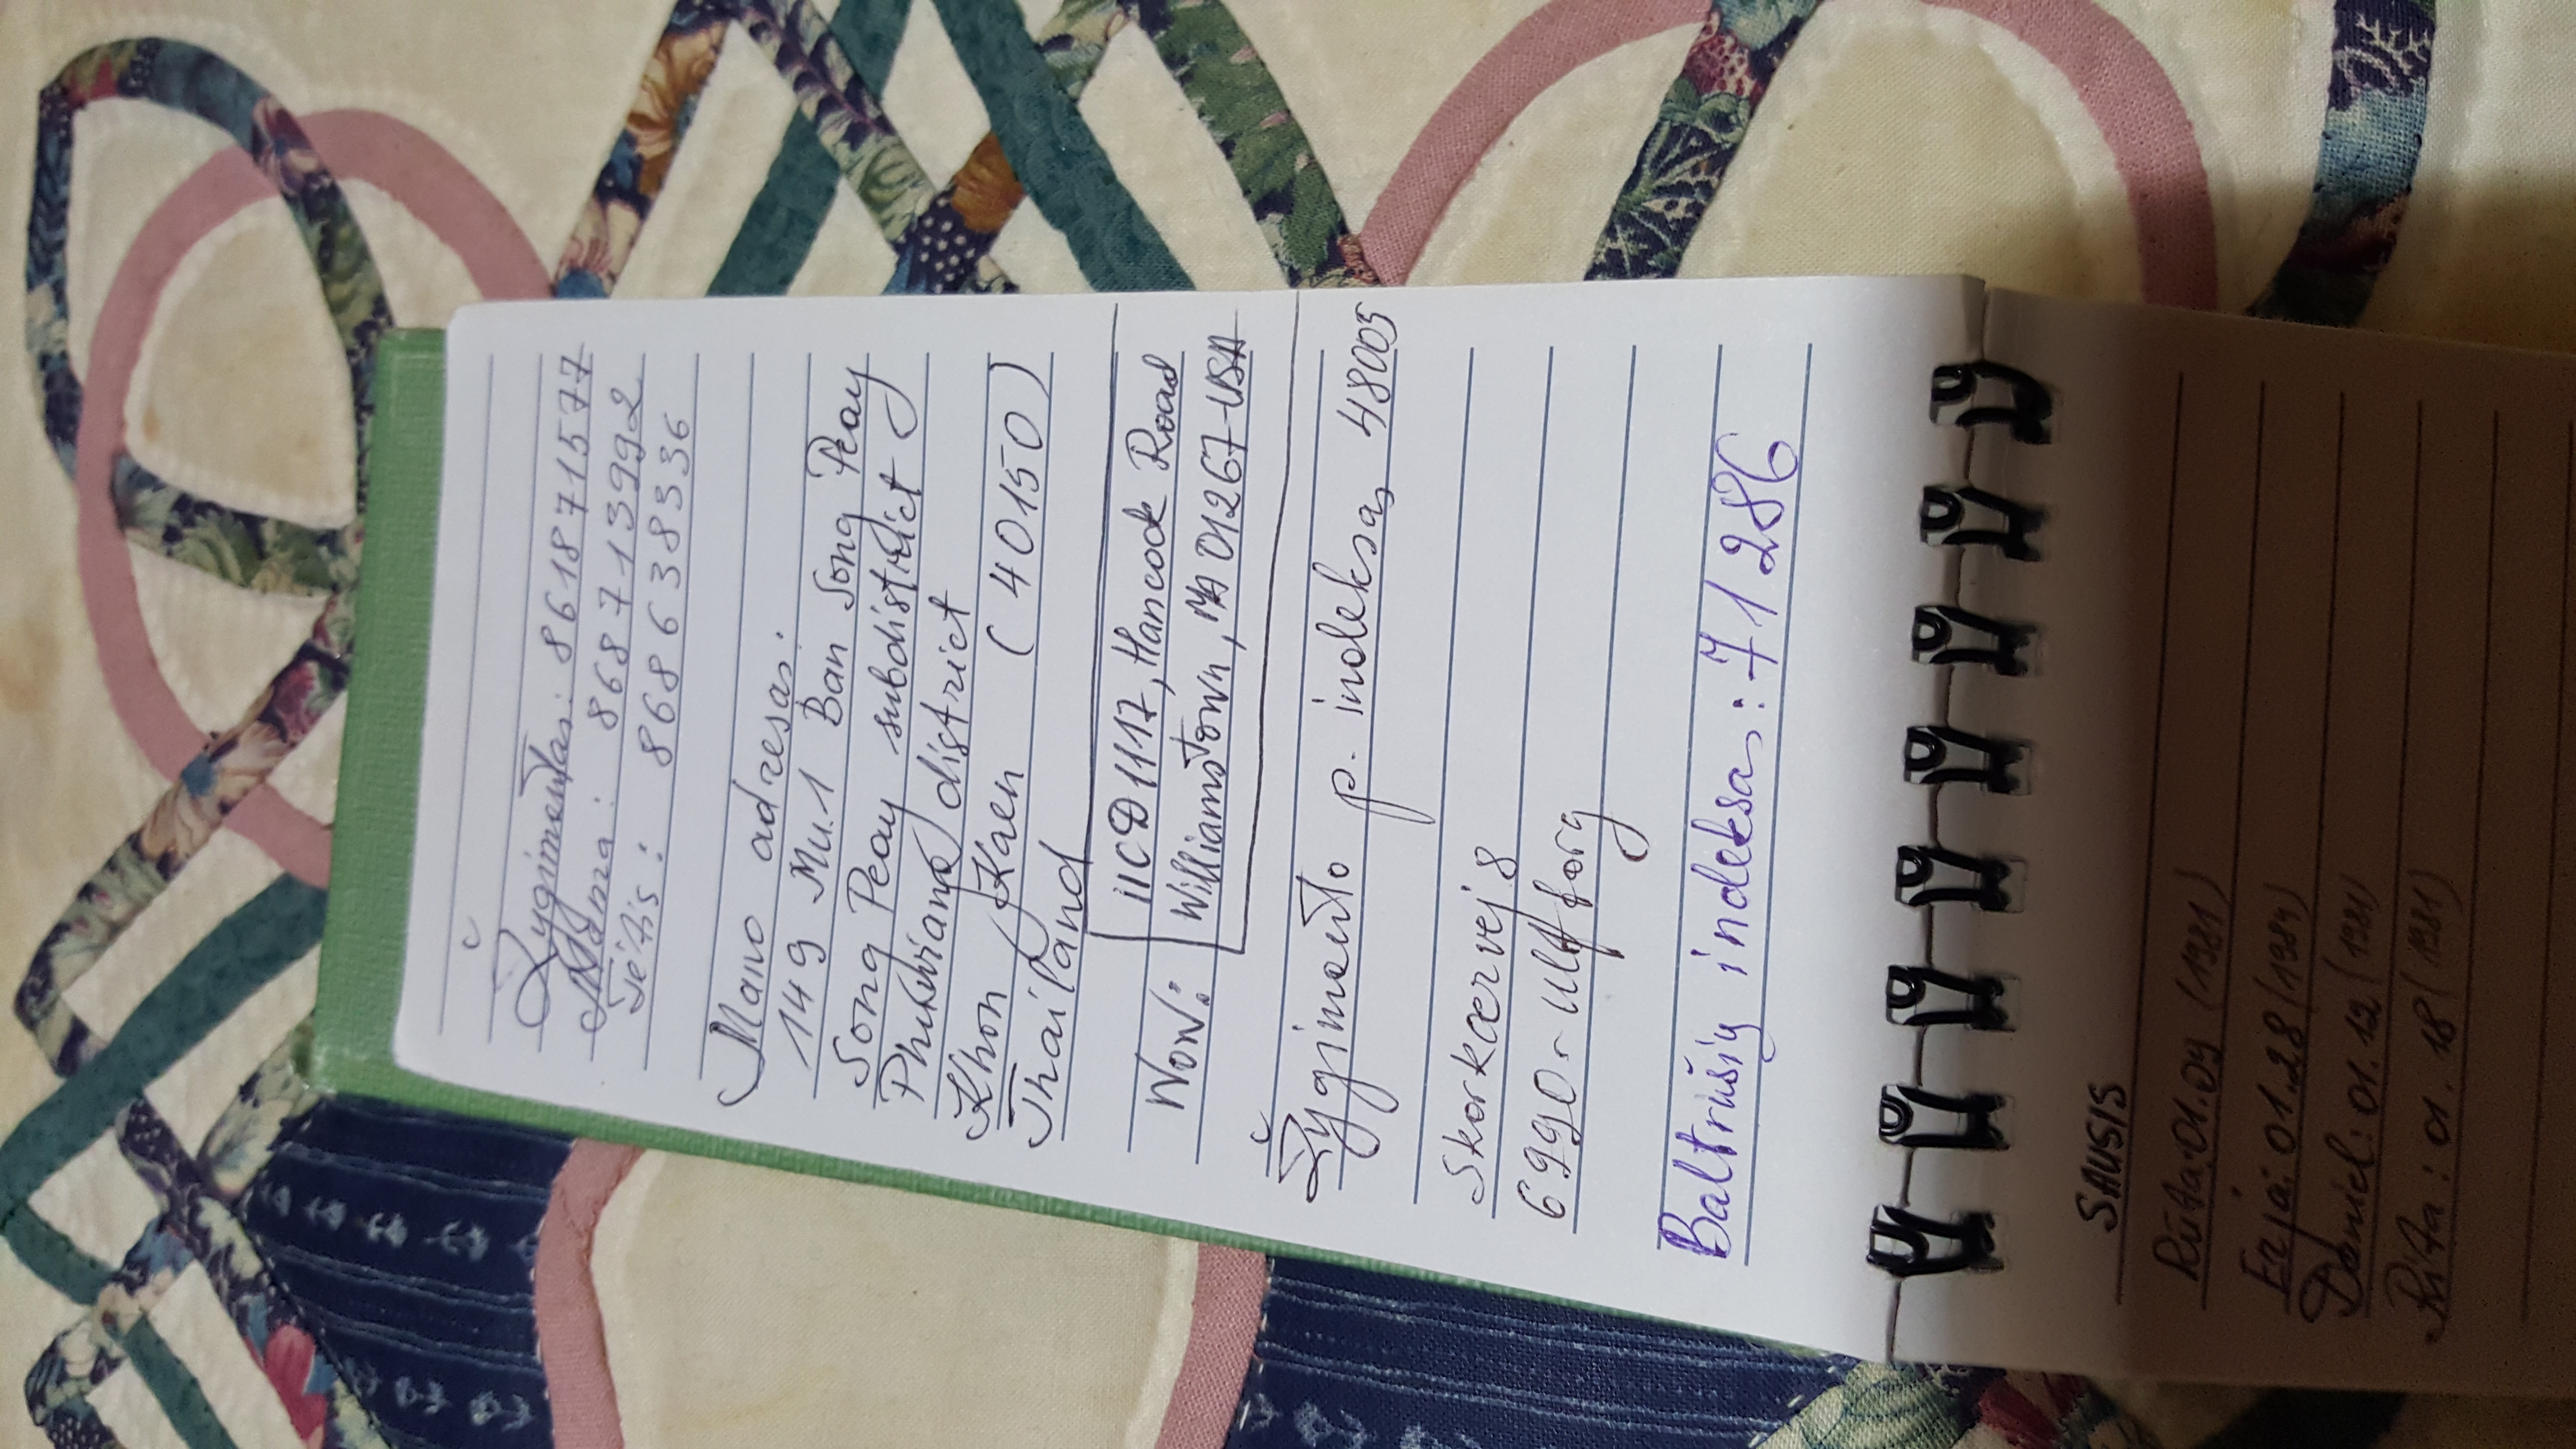 Žygimantas: 861871577
Mama: 868713992
Tėtis: 868638336
Mano adresas:
149 Mu.1 Ban Song Peay
Song Peay subdistrict
Phuwiang district
Khon Kaen (40150)
Thailand
Now: IICD 1117, Hancock Road
Williamstown, MA 01267-USA
Žygimanto p. indeksas 48005
Skorkærvej 8
6990 - Ulfborg
Baltrušių indeksas: 71286
SAUSIS
Rūta: 01.09 (1981)
01.28 (1984)
Daniel: 01.12 (1981)
Rita: 01.18 (1981)